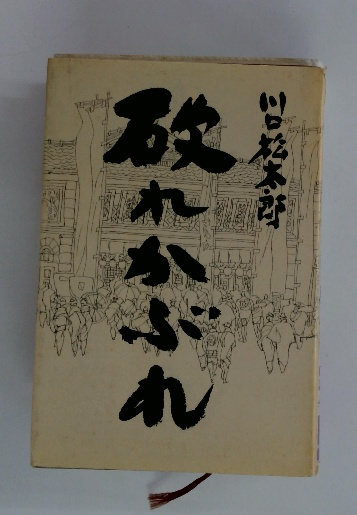 川口松太郎
破れかぶれ